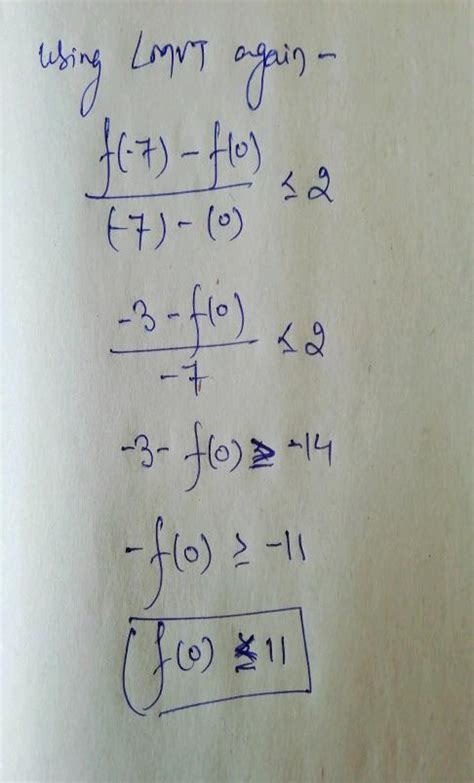 using LMVT again -
f(-7) - f(0)
(-7) - (0)
≤ 2
-3 - f(0)
-7
≤ 2
-3 - f(0) ≥ -14
-f(0) ≥ -11
f(0) ≤ 11